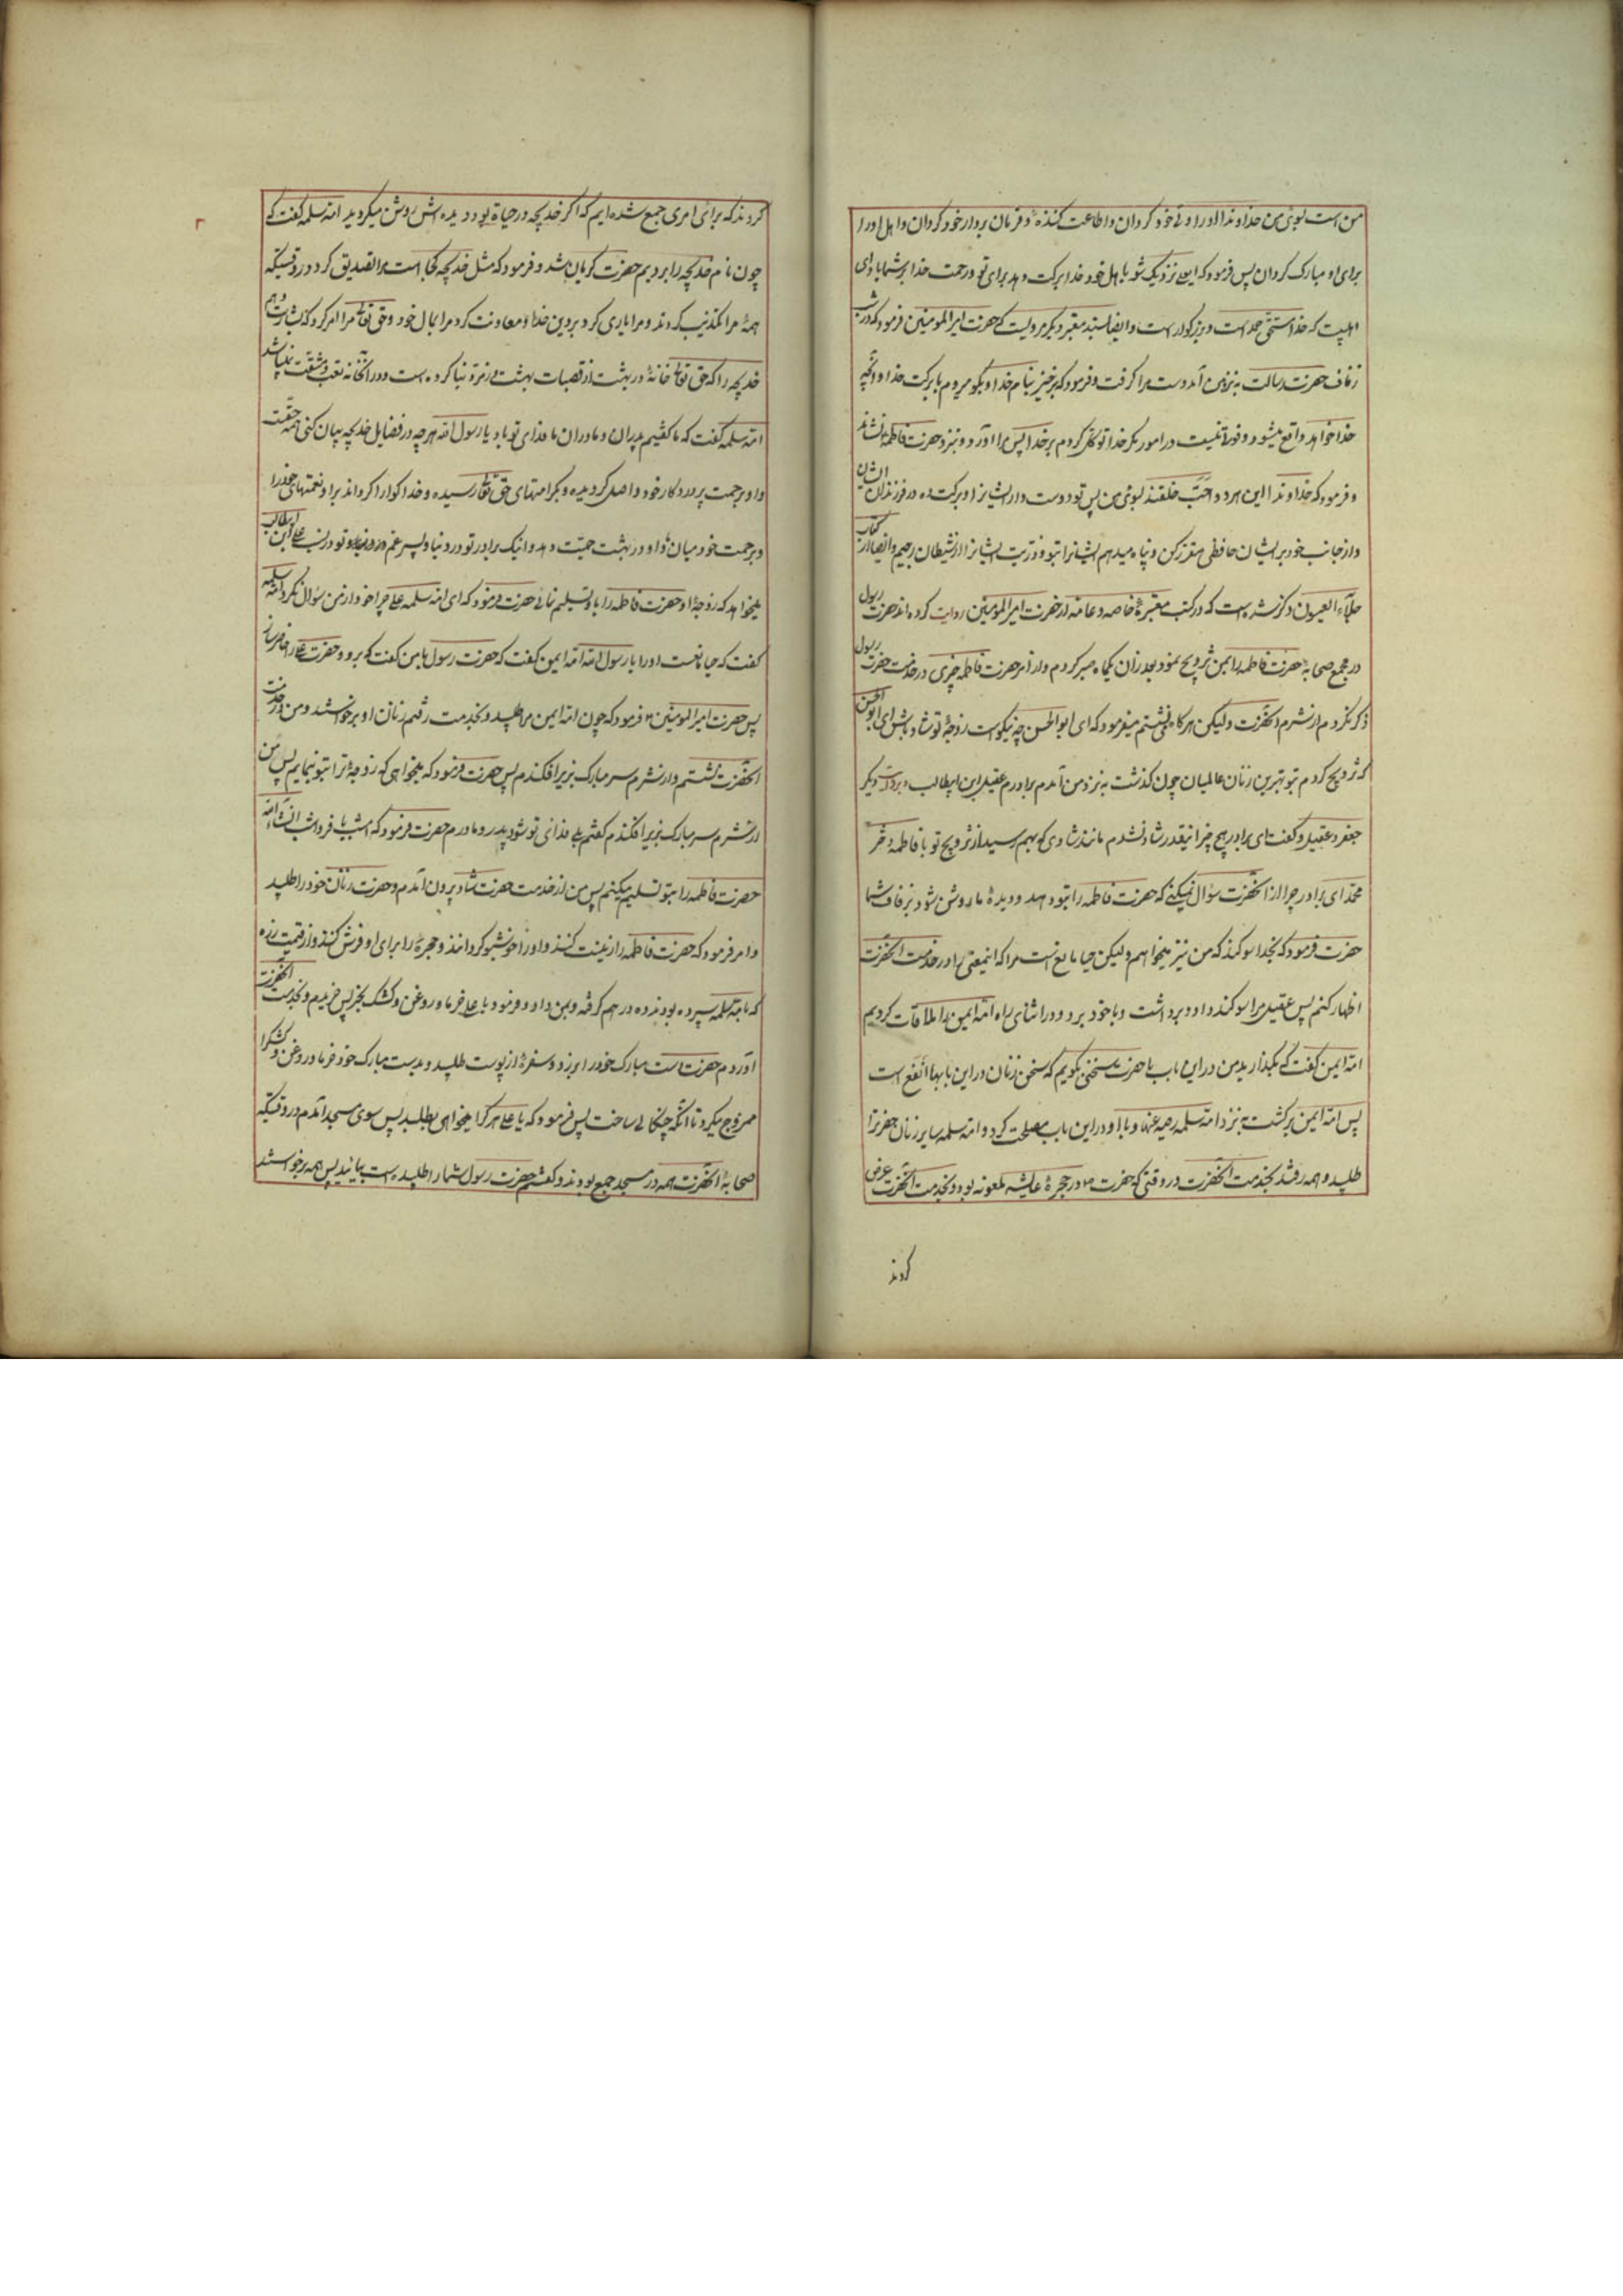 من است بسوی من خداوندا او را ولی خود گردان و اطاعت کننده و فرمان بردار خود گردان و اهل او را
برای او مبارک گردان پس فرمود که ایعلی نزدیک شو باهل خود خدا برکت دهد برای تو و رحمت خدا بر شما باد ای
اهلبیت که خدا مستحق حمد است و بزرگوار است و ایضا بسند معتبر دیگر مرویست که حضرت امیرالمومنین فرمود که در شب
زفاف حضرت رسالت به نزد من آمد و دست مرا گرفت و فرمود که برخیز بنام خدا و بگو میروم با برکت خدا و آنچه
خدا خواهد واقع میشود و قوة نیست در امور مگر خدا توکل کردم بر خدا پس مرا آورد و نزد حضرت فاطمه نشاند
و فرمود که خداوندا این هر دو احب خلقند بسوی من پس تو دوست دار ایشانرا و برکت ده در فرزندان ایشان
و از جانب خود بر ایشان حافظی مقرر کن و پناه میدهم ایشانرا بتو و ذریت ایشانرا از شیطان رجیم و ایضا در کتاب
جلاء العیون ذکر شده است که در کتب معتبرهٔ خاصه و عامه از حضرت امیرالمومنین روایت کرده‌اند حضرت رسول
در مجمع صحابه حضرت فاطمه را بمن تزویج نمود بعد از آن یکماه صبر کردم و از امر حضرت فاطمه چیزی در خدمت حضرت رسول
ذکر نکردم از شرم آنحضرت ولیکن هر گاه می نشستم میفرمود که ای ابوالحسن چه نیکو است زوجهٔ تو شاد باش ای ابوالحسن
که تزویج کردم بتو بهترین زنان عالمیان چون گذشت به نزد من آمدم برادرم عقیل ابن ابیطالب و بروایت دیگر
جعفر و عقیل و گفت ای برادر بهیچ چیز اینقدر شاد نشدم مانند شادی که بهم رسید از تزویج تو با فاطمه دختر
محمد ای برادر چرا از آنحضرت سؤال نمیکنی که حضرت فاطمه را بتو دهد و دیدهٔ ما روشن شود بزفاف شما
حضرت فرمود که بخدا سوگند که من نیز میخواهم ولیکن حیا مانع است مرا که اینمعنی را در خدمت آنحضرت
اظهار کنم پس عقیل مرا سوگند داد و برداشت و با خود برد و در اثنای راه ام ایمن را ملاقات کردیم
ام ایمن گفت که بگذارید من در این باب با حضرت سخنی بگویم که سخن زنان در این بابها انفع است
پس ام ایمن برگشت به نزد ام سلمه رضیه عنها و با او در این باب مصلحت کرد و ام سلمه سایر زنان حضرترا
طلبید و همه رفتند بخدمت آنحضرت در وقتی که حضرت در حجرهٔ عایشه ملعونه بود و بخدمت آنحضرت عرض
کردند
کردند که برای امری جمع شده ایم که اگر خدیجه در حیاة بود دیده اش روشن میگردید ام سلمه گفت که
چون نام خدیجه را بردیم حضرت گریان شد و فرمود که مثل خدیجه کجا است مرا تصدیق کرد در وقتیکه
همه مرا تکذیب کردند و مرا یاری کرد بر دین خدا و معاونت کرد مرا بمال خود و حق تعالی مرا امر کرد که بشارت دهم
خدیجه را که حق تعالی خانهٔ در بهشت از قصبات بهشت از زمرد بنا کرده است و در آنخانه تعب و مشقت نمیباشد
ام سلمه گفت که ما گفتیم پدران و مادران ما فدای تو باد یا رسول الله هر چه در فضایل خدیجه بیان کنی همه حقست
و او برحمت پروردگار خود واصل گردیده و بکرامتهای حق تعالی رسیده و خدا گوارا گرداند بر او نعمتهای خود را
و برحمت خود میان ما و او در بهشت جمعیت دهد و اینک برادر تو در دنیا و پسر عم تو در نسب علی ابن ابیطالب
میخواهد که زوجهٔ او حضرت فاطمه را باو تسلیم نمائی حضرت فرمود که ای ام سلمه علی چرا خود از من سؤال نکرد ام سلمه
گفت که حیا مانعست او را یا رسول الله ام ایمن گفت که حضرت رسول بمن گفت که برو و حضرت علی را حاضر ساز
پس حضرت امیرالمومنین فرمود که چون ام ایمن مرا طلبید و بخدمت رفتم زنان او برخواستند و من در خدمت
آنحضرت نشستم و از شرم سر مبارک بزیر افکندم پس حضرت فرمود که میخواهی که زوجهٔ ترا بتو نمایم پس من
از شرم سر مبارک بزیر افکندم گفتم بلی فدای تو شود پدر و مادرم حضرت فرمود که امشب یا فردا شب انشاء الله
حضرت فاطمه را بتو تسلیم میکنم پس من از خدمت حضرت شاد بیرون آمدم و حضرت زنان خود را طلبید
و امر فرمود که حضرت فاطمه را زینت کنند و او را خوشبو گردانند و حجرهٔ را برای او فرش کنند و از قیمت زره
که با ام سلمه سپرده بودند ده درهم گرفت و بمن داد و فرمود یا علی خرما و روغن و کشک بخر پس خریدم و بخدمت آنحضرت
آوردم حضرت آستین مبارک خود را بر زد و سفرهٔ از پوست طلبید و بدست مبارک خود خرما و روغن و کشک را
ممزوج میکرد تا آنکه چنگالی ساخت پس فرمود که یا علی هر کرا میخواهی بطلب پس سوی مسجد آمدم در وقتیکه
صحابهٔ آنحضرت همه در مسجد جمع بودند و گفتم حضرت رسول شما را طلبیده است بیائید پس همه برخواستند